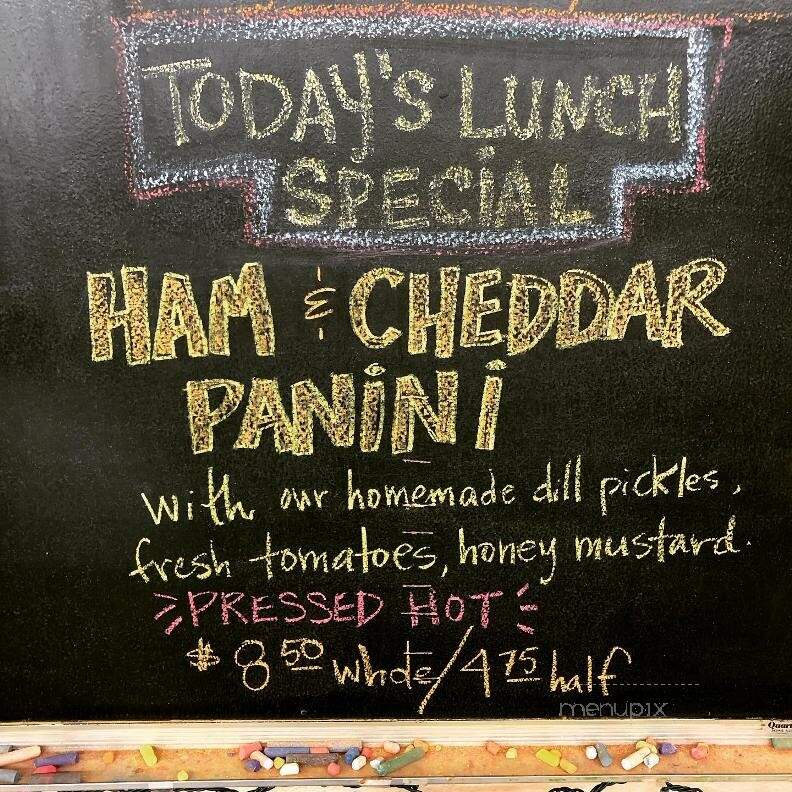 TODAY'S LUNCH
SPECIAL
HAM & CHEDDAR
PANINI
with our homemade dill pickles,
fresh tomatoes, honey mustard.
PRESSED HOT
$8 50 whole/4 75 half
menupix